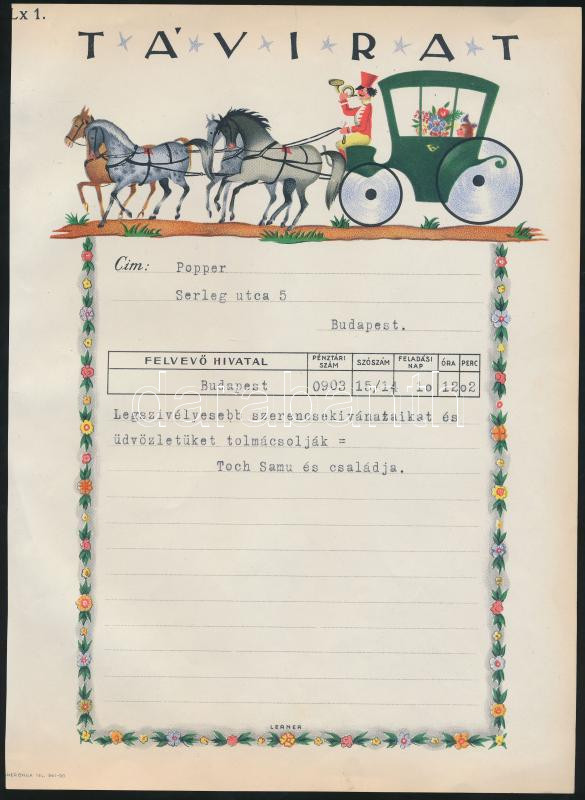 Lx 1.
TÁVIRAT
Cim: Popper
Serleg utca 5
Budapest.
FELVEVŐ HIVATAL PÉNZTÁRI SZÁM SZÓSZÁM FELADÁSI NAP ÓRA PERC
Budapest 0903 15/14 1o 12o2
Legszivélyesebb szerencsekivánataikat és
üdvözletüket tolmácsolják =
Toch Samu és családja.
LERNER
darabanth